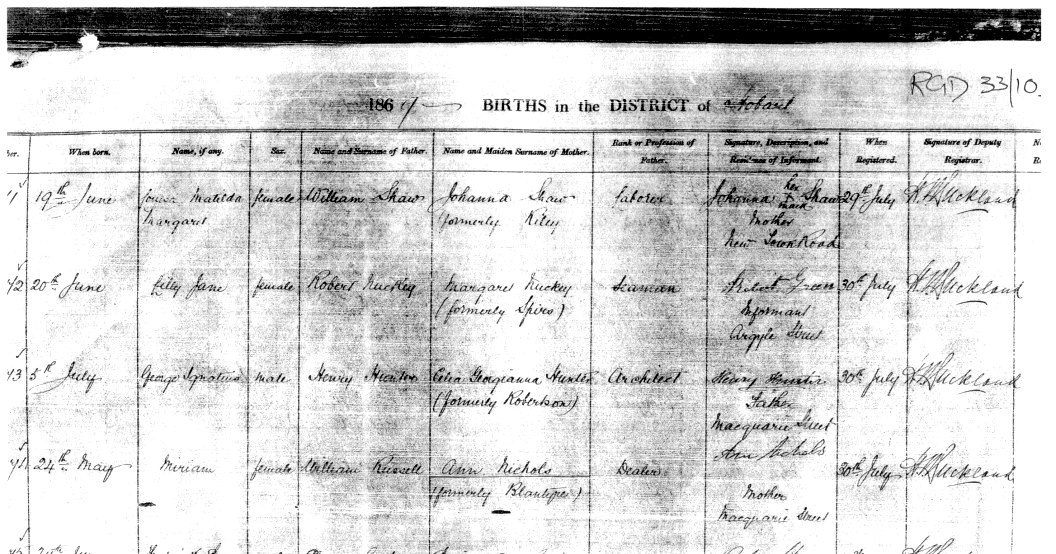 RGD 33/10
186 BIRTHS in the DISTRICT of Hobart
When born. Name, if any. Sex. Name and Surname of Father. Name and Maiden Surname of Mother. Rank or Profession of Father. Signature, Description, and Residence of Informant. When Registered. Signature of Deputy Registrar.
19th June Louisa Matilda Margaret female William Shaw Johanna Shaw (formerly Riley Laborer Johanna her + mark Shaw Mother New Town Road 29th July
20th June Lilly Jane female Robert Nuckey Margaret Nuckey (formerly Spires) Seaman Green Informant Argyle Street 30th July
5th July George Ignatius male Henry Hunter Celia Georgianna Hunter (formerly Robertson) Architect Henry Hunter Father Macquarie Street 30th July
24th May Miriam female William Russell Ann Nichols (formerly Blantyre) Dealer Ann Nichols Mother Macquarie Street 30th July